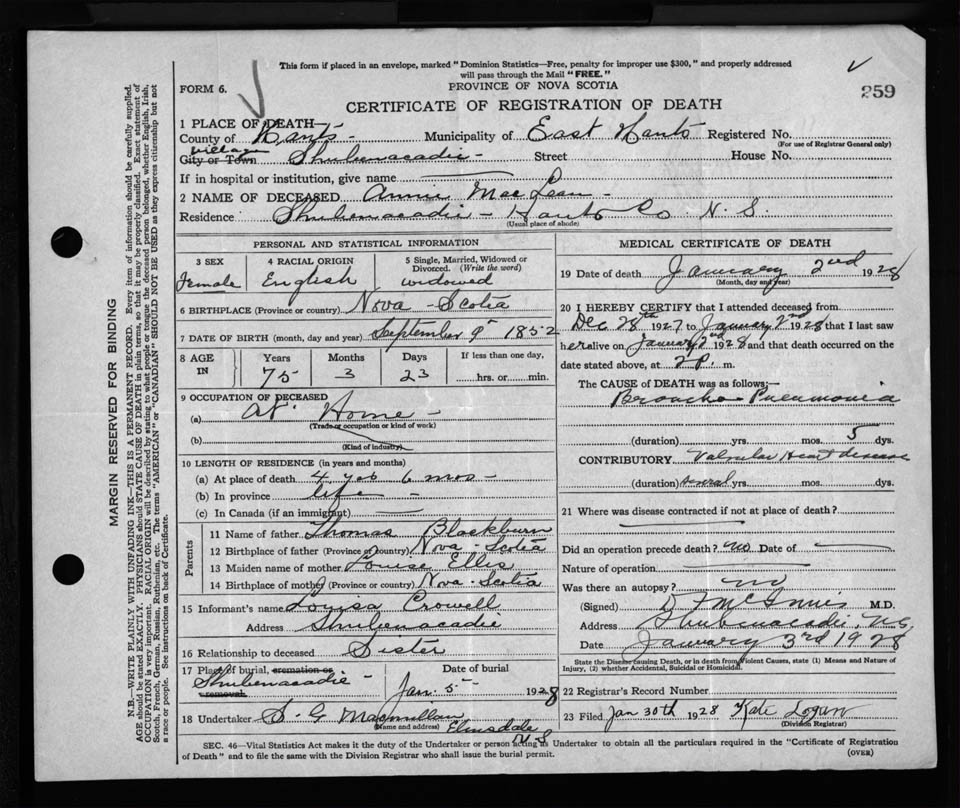 This form if placed in an envelope, marked "Dominion Statistics—Free, penalty for improper use $300," and properly addressed
will pass through the Mail "FREE."
FORM 6.
PROVINCE OF NOVA SCOTIA
259
CERTIFICATE OF REGISTRATION OF DEATH
1 PLACE OF DEATH—
County of Hants - Municipality of East Hants Registered No.
(For use of Registrar General only)
village
City or Town Shubenacadie - Street House No.
If in hospital or institution, give name
2 NAME OF DECEASED Annie MacLean -
Residence Shubenacadie - Hants Co N. S.
(Usual place of abode)
PERSONAL AND STATISTICAL INFORMATION
3 SEX 4 RACIAL ORIGIN 5 Single, Married, Widowed or Divorced. (Write the word)
Female English widowed
6 BIRTHPLACE (Province or country) Nova - Scotia
7 DATE OF BIRTH (month, day and year) September 9 1852
8 AGE IN Years Months Days If less than one day,
75 3 23 hrs. or min.
9 OCCUPATION OF DECEASED
(a) At Home -
(Trade or occupation or kind of work)
(b)
(Kind of industry)
10 LENGTH OF RESIDENCE (in years and months)
(a) At place of death 4 yrs 6 mos -
(b) In province life -
(c) In Canada (if an immigrant)
Parents
11 Name of father Thomas Blackburn
12 Birthplace of father (Province or country) Nova - Scotia
13 Maiden name of mother Louise Ellis
14 Birthplace of mother (Province or country) Nova - Scotia
15 Informant's name Louisa Crowell
Address Shubenacadie
16 Relationship to deceased Sister
17 Place of burial, cremation or removal Date of burial
Shubenacadie - Jan. 5 1928
18 Undertaker S. G Macmillan
(Name and address) Elmsdale
N. S
MEDICAL CERTIFICATE OF DEATH
19 Date of death January 2nd 1928
(Month, day and year)
20 I HEREBY CERTIFY that I attended deceased from
Dec 28th 1927 to January 2nd 1928 that I last saw
her alive on January 2nd 1928 and that death occurred on the
date stated above, at 2 P. m.
The CAUSE OF DEATH was as follows:—
Broncho Pneumonia
(duration) yrs. mos. 5 dys.
CONTRIBUTORY Valvular Heart disease
(duration) several yrs. mos. dys.
21 Where was disease contracted if not at place of death?
Did an operation precede death? no Date of
Nature of operation
Was there an autopsy? no
(Signed) D F McInnis M.D.
Address Shubenacadie, N.S.
Date January 3rd 1928
State the Disease causing Death, or in death from Violent Causes, state (1) Means and Nature of
Injury, (2) whether Accidental, Suicidal or Homicidal.
22 Registrar's Record Number
23 Filed Jan 30th 1928 Kate Logan
(Division Registrar)
SEC. 46—Vital Statistics Act makes it the duty of the Undertaker or person acting as Undertaker to obtain all the particulars required in the "Certificate of Registration
of Death" and to file the same with the Division Registrar who shall issue the burial permit.
(OVER)
MARGIN RESERVED FOR BINDING
N.B.—WRITE PLAINLY WITH UNFADING INK—THIS IS A PERMANENT RECORD. Every item of information should be carefully supplied.
AGE should be stated EXACTLY. PHYSICIANS should STATE CAUSE OF DEATH in plain terms, so that it may be properly classified. Exact statement of
OCCUPATION is very important. RACIAL ORIGIN will be described by stating to what people or tongue the deceased person belonged, whether English, Irish,
Scotch, French, German, Russian, Ruthenian, etc. The terms "AMERICAN" or "CANADIAN" SHOULD NOT BE USED as they express citizenship but not
a race or people. See instructions on back of Certificate.